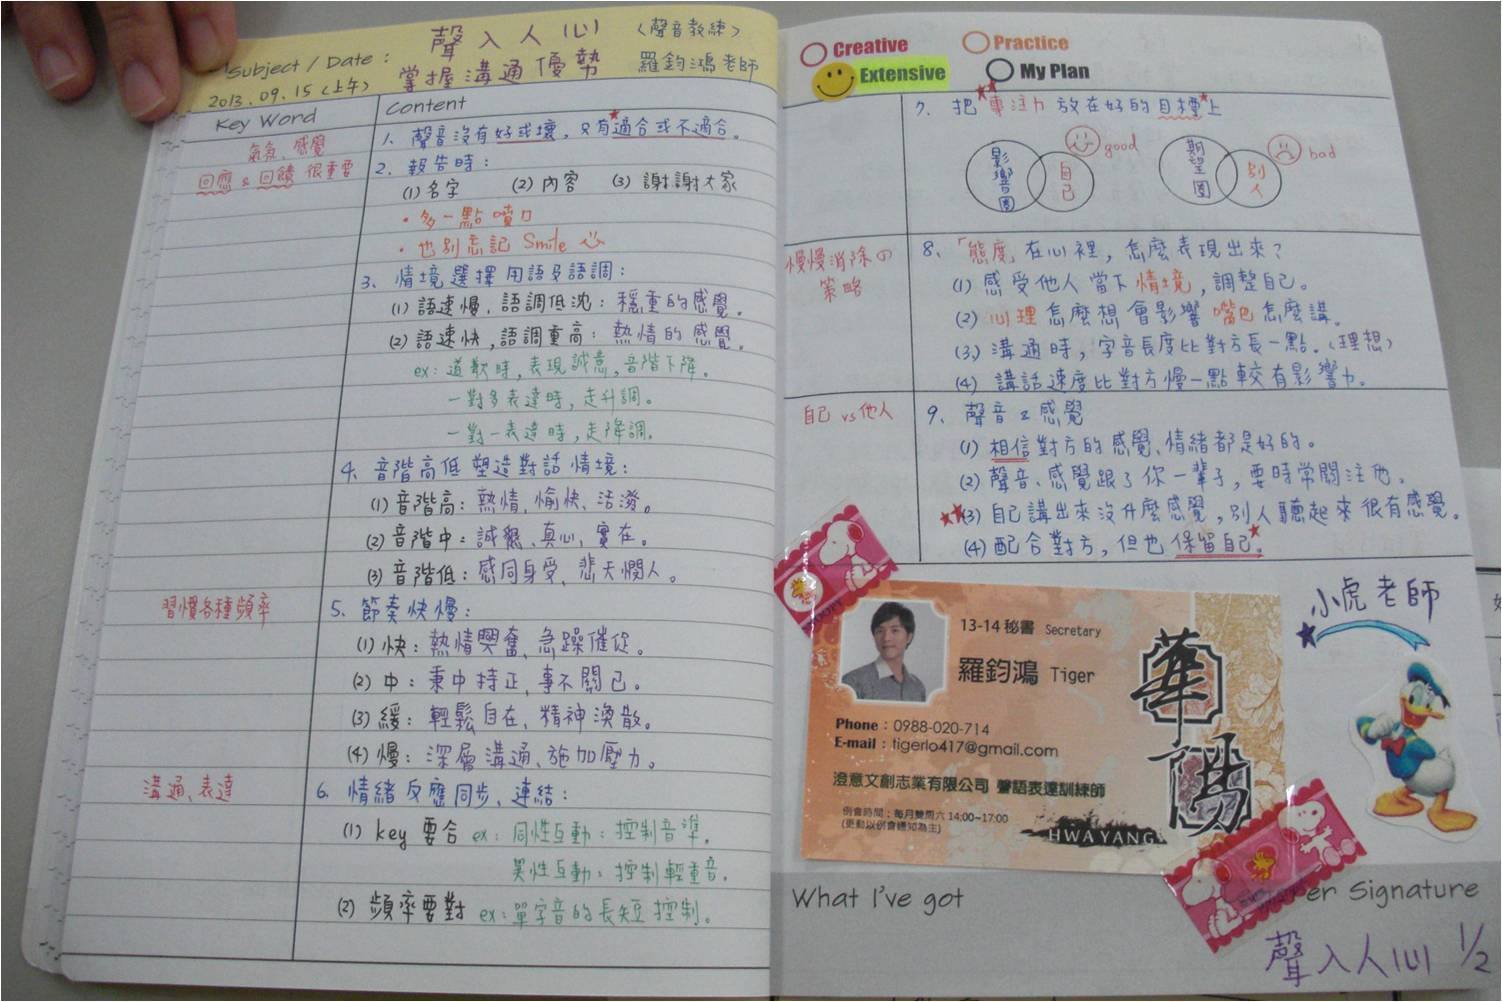 Subject / Date :
聲入人心
(聲音教練)
掌握溝通優勢
羅鈞鴻老師
2013.09.15 (上午)
Key Word
Content
氣氛、感覺
回應 & 回饋 很重要
1. 聲音沒有好或壞，只有適合或不適合。
2. 報告時：
(1) 名字 (2) 內容 (3) 謝謝大家
• 多一點噴口
• 也別忘記 Smile
3. 情境選擇用語及語調：
(1) 語速慢，語調低沈：穩重的感覺。
(2) 語速快，語調重高：熱情的感覺。
ex: 道歉時，表現誠意，音階下降。
一對多表達時，走升調。
一對一表達時，走降調。
4. 音階高低塑造對話情境：
(1) 音階高：熱情、愉快、活潑。
(2) 音階中：誠懇、真心、實在。
(3) 音階低：感同身受、悲天憫人。
習慣各種頻率
5. 節奏快慢：
(1) 快：熱情興奮、急躁催促。
(2) 中：秉中持正、事不關己。
(3) 緩：輕鬆自在、精神渙散。
(4) 慢：深層溝通、施加壓力。
溝通、表達
6. 情緒反應同步、連結：
(1) key 要合 ex: 同性互動：控制音準。
異性互動：控制輕重音。
(2) 頻率要對 ex: 單字音的長短控制。
Creative
Practice
Extensive
My Plan
7. 把專注力放在好的目標上
影響圈
自己
good
期望圈
別人
bad
慢慢消除の
策略
8. 「態度」在心裡，怎麼表現出來？
(1) 感受他人當下情境，調整自己。
(2) 心理怎麼想會影響嘴巴怎麼講。
(3) 溝通時，字音長度比對方長一點。(理想)
(4) 講話速度比對方慢一點較有影響力。
自己 vs 他人
9. 聲音 & 感覺
(1) 相信對方的感覺、情緒都是好的。
(2) 聲音、感覺跟了你一輩子，要時常關注他。
(3) 自己講出來沒什麼感覺，別人聽起來很有感覺。
(4) 配合對方，但也保留自己。
小虎老師
13-14 秘書 Secretary
羅鈞鴻 Tiger
Phone : 0988-020-714
E-mail : tigerlo417@gmail.com
澄意文創志業有限公司 聲語表達訓練師
例會時間：每月雙周六 14:00~17:00
(更動以例會通知為主)
華陽
HWAYANG
What I've got
Signature
聲入人心 1/2